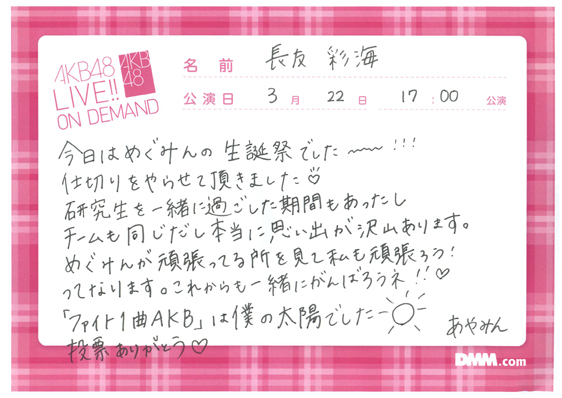 AKB48
LIVE!!
ON DEMAND
AKB
48
名前 長友 彩海
公演日 3月 22日 17:00 公演
今日はめぐみんの生誕祭でした〜!!!
仕切りをやらせて頂きました♡
研究生を一緒に過ごした期間もあったし
チームも同じだし本当に思い出が沢山あります。
めぐみんが頑張ってる所を見て私も頑張ろう!
ってなります。これからも一緒にがんばろうネ!!♡
「ファイト1曲AKB」は僕の太陽でした
投票ありがとう♡
あやみん
DMM.com